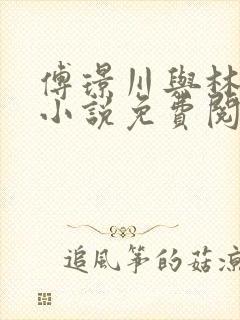 傅璟川與林
小說免費閱
追風箏的菇涼